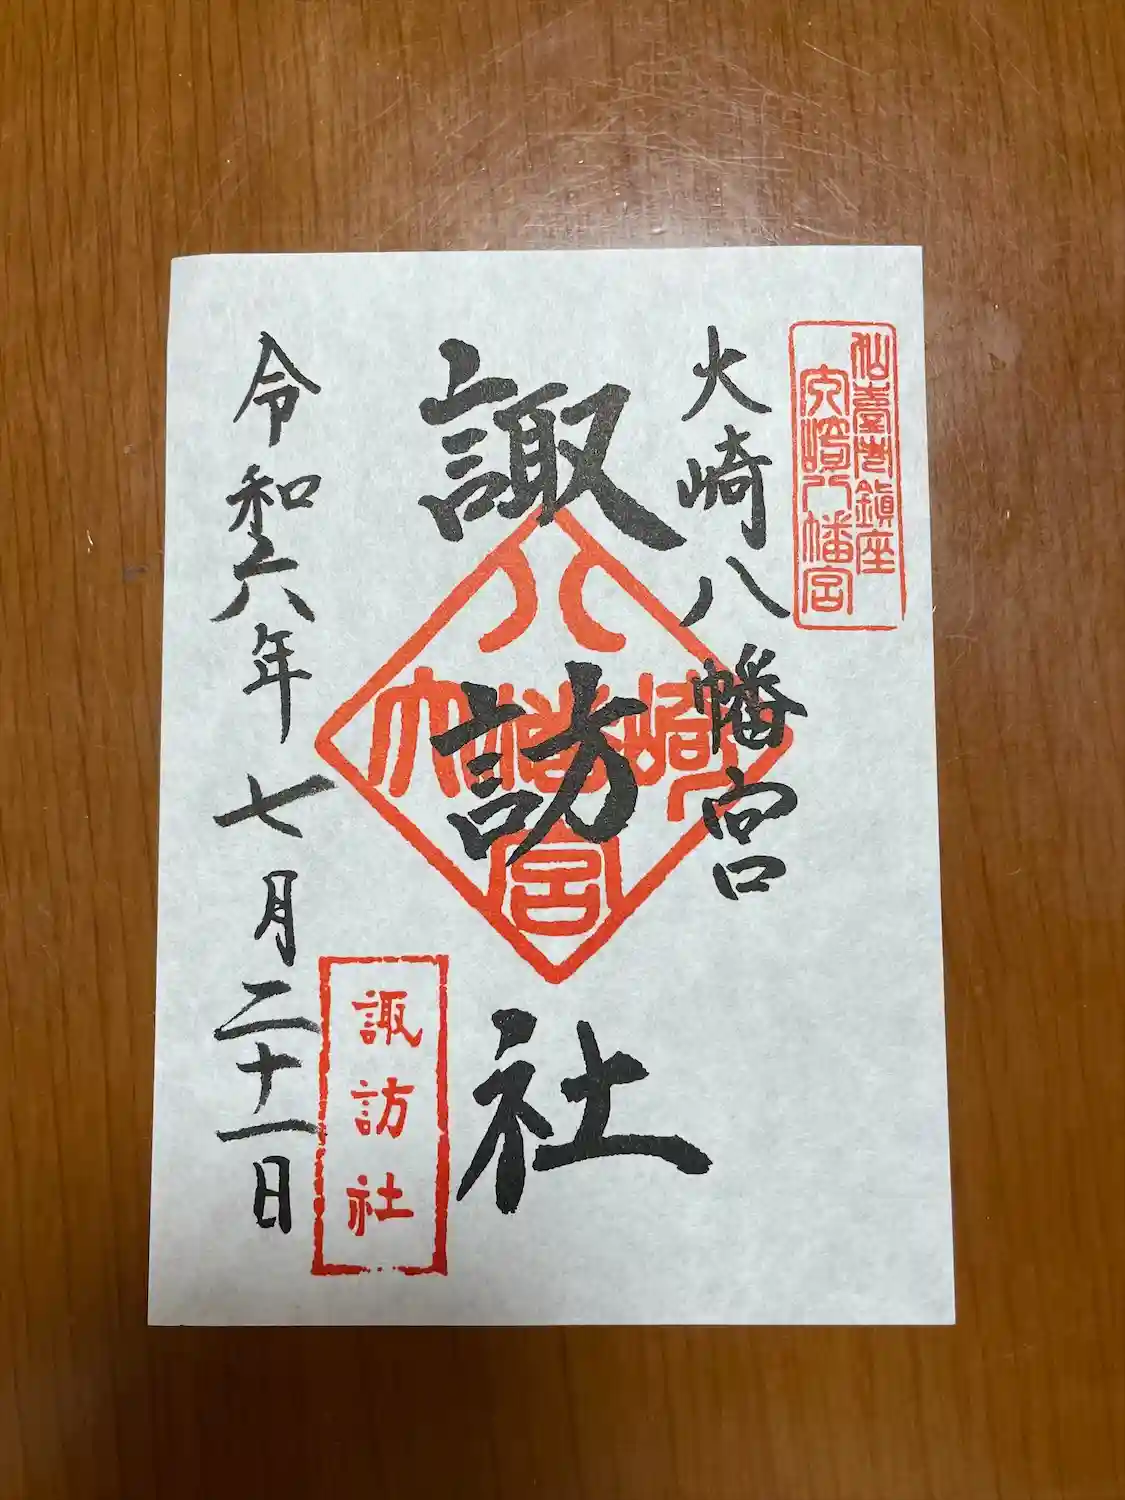 仙臺总鎮座
大崎八幡宮
大崎八幡宮
諏訪社
八
大幡崎
宮
諏訪社
令和六年七月二十一日